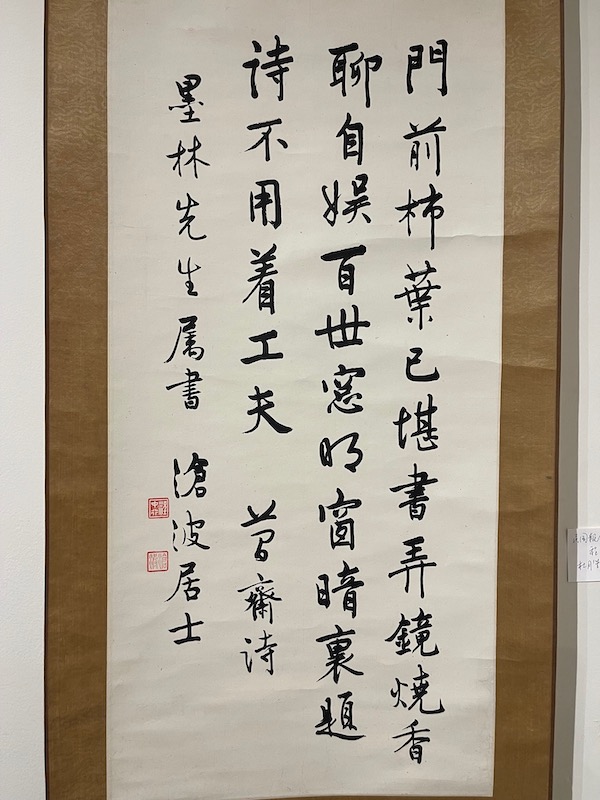 門前柿葉已堪書弄鏡燒香
聊自娛百世窓明窗暗裏題
詩不用着工夫 簡齋詩
墨林先生属書 滄波居士